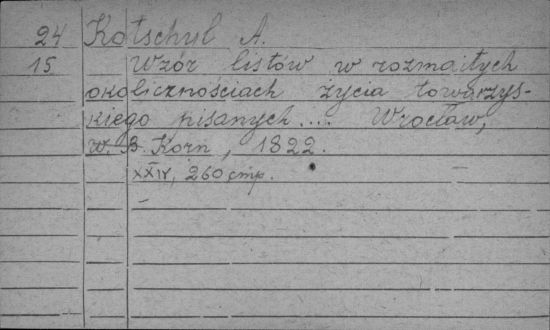 24 Kotschyb A.
15 Wzór listów w rozmaitych
okolicznościach życia towarzys-
kiego pisanych.... Wrocław,
W. B. Korn, 1822.
XXIV, 260 cmp.